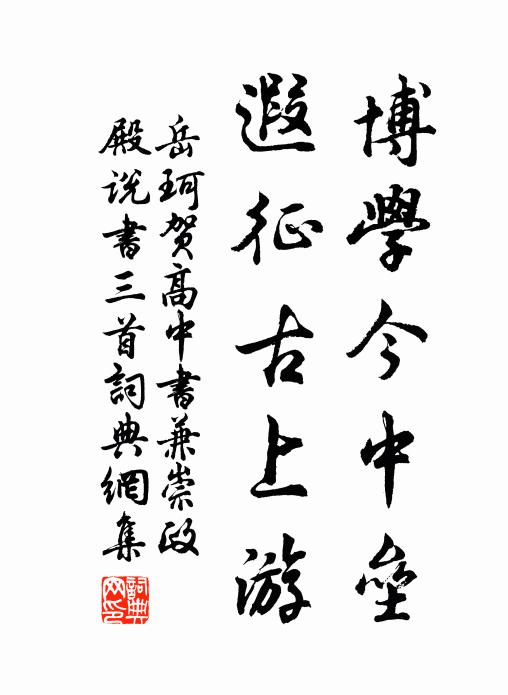 博學今中壘
遐征古上游
岳珂賀高中書兼崇政
殿说書三首詞典網集
詞典网印